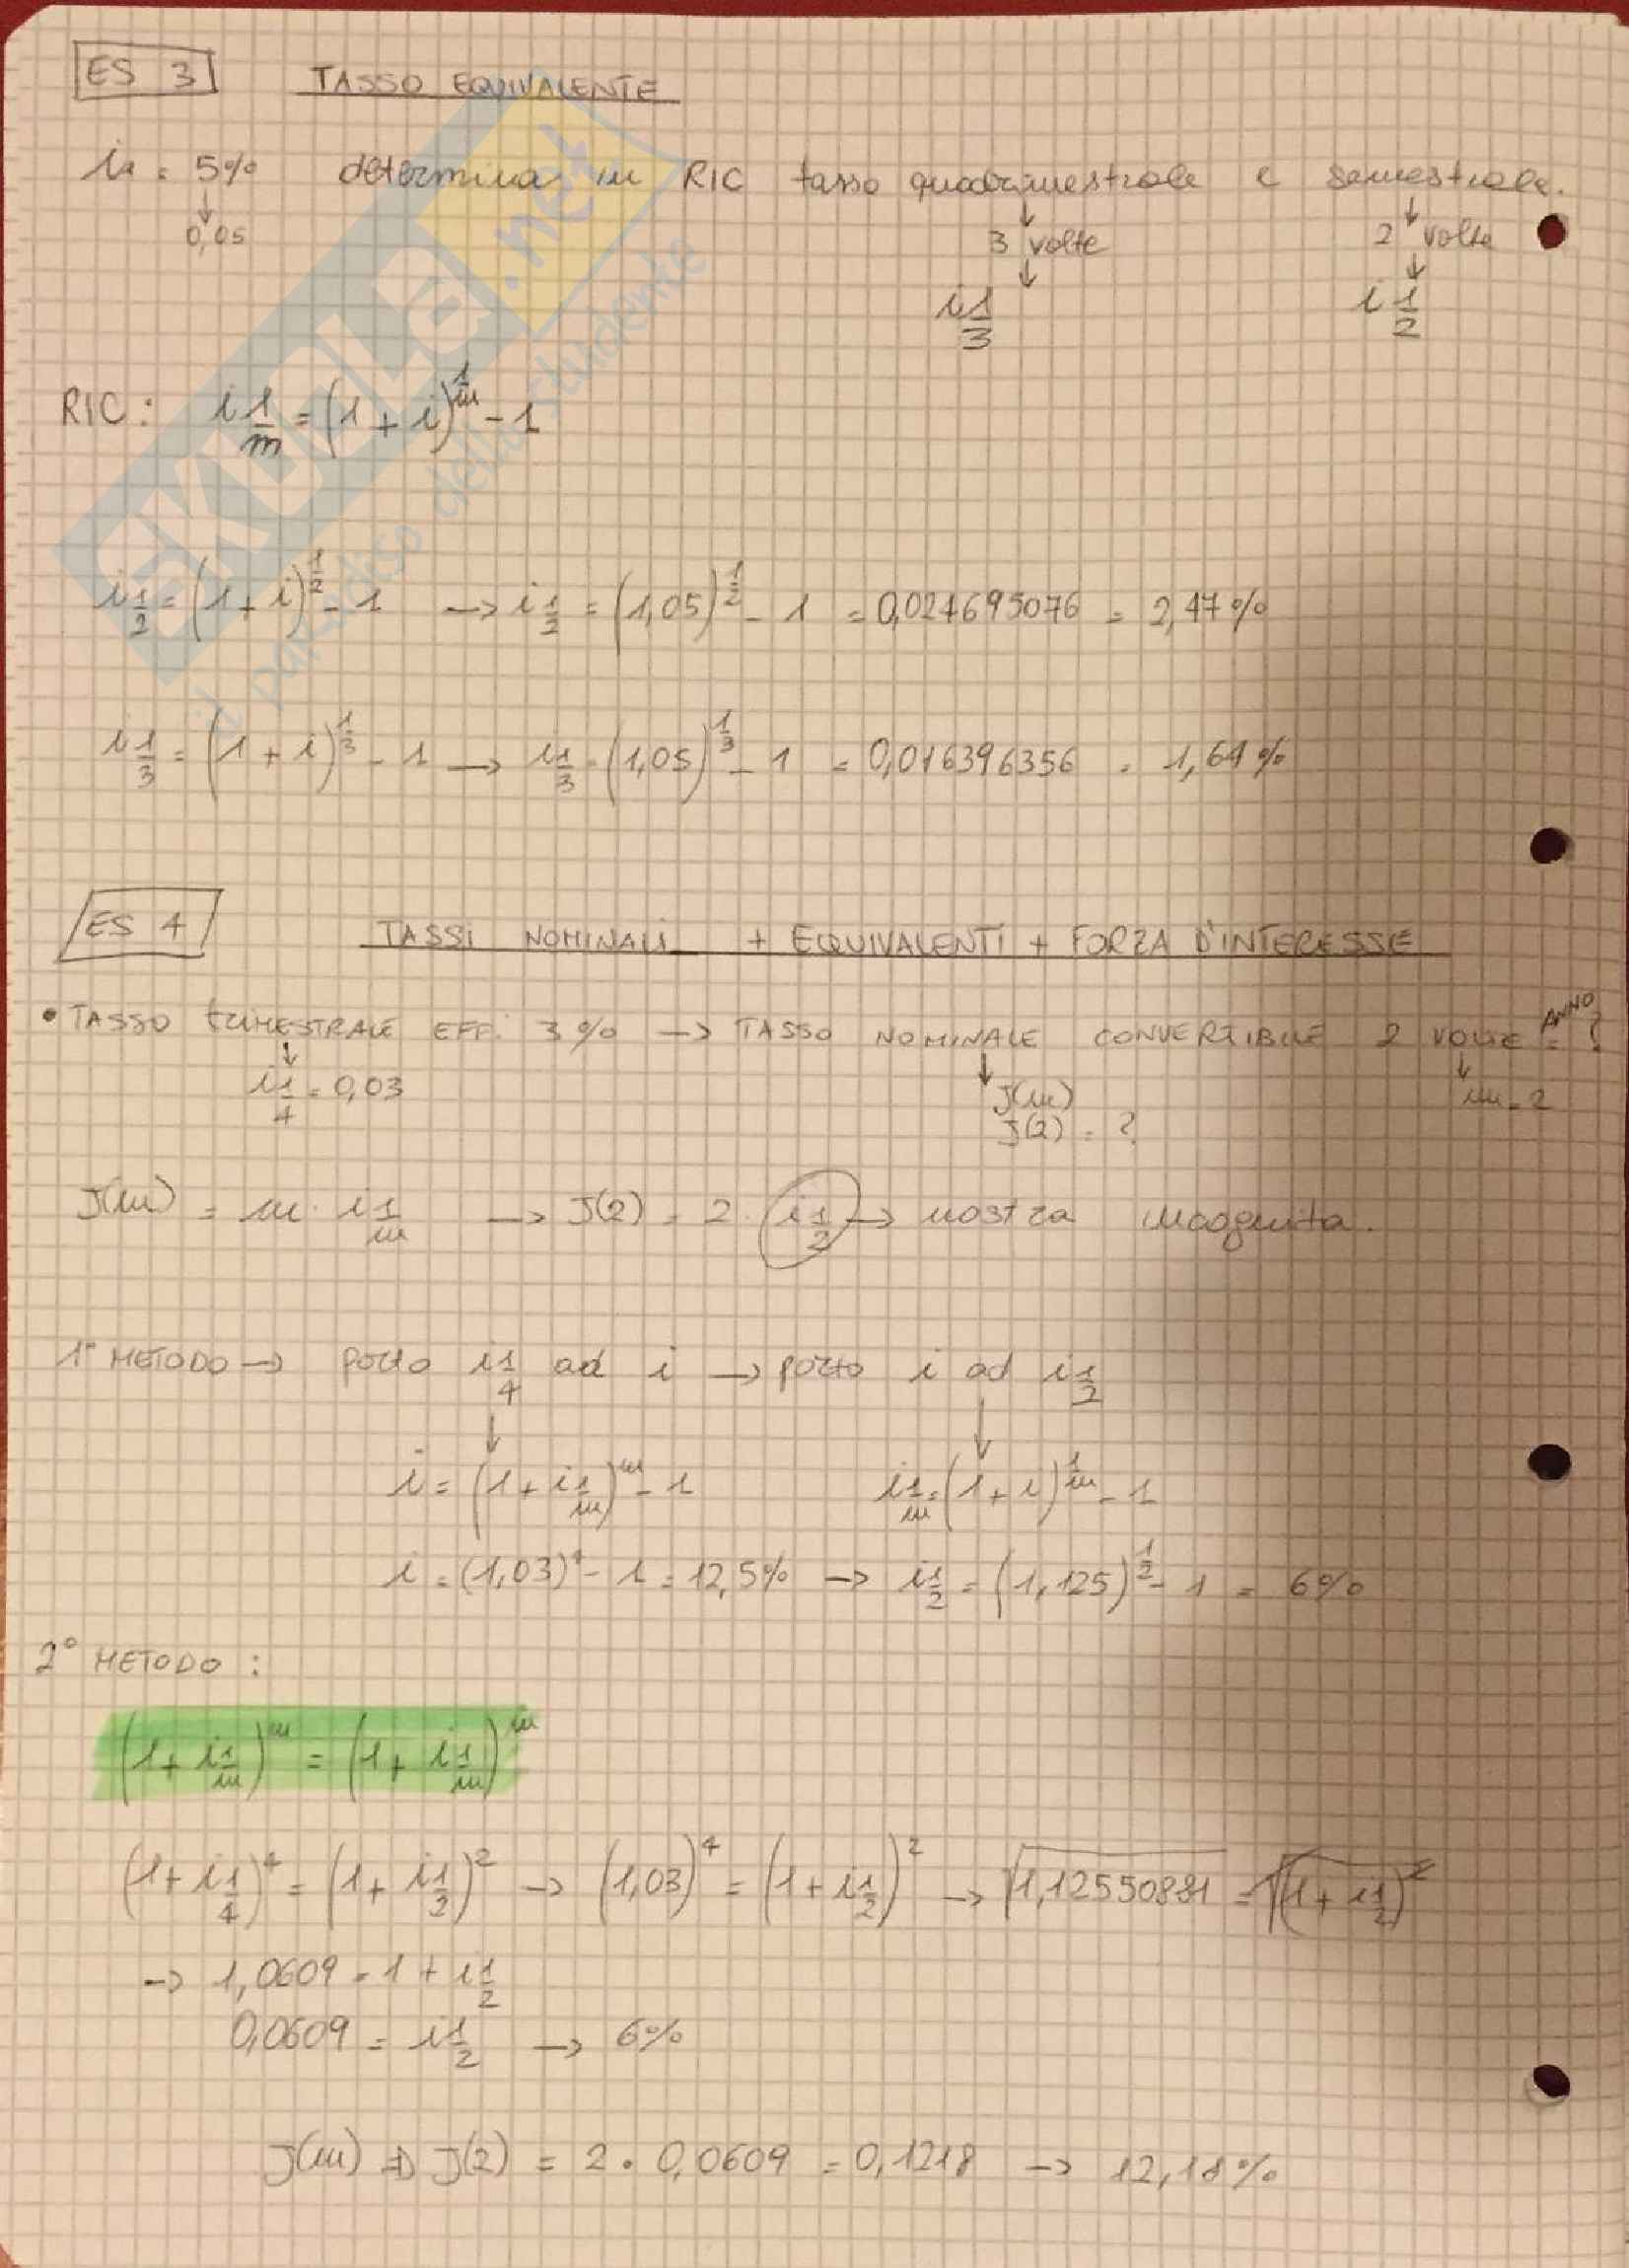 ES 3 TASSO EQUIVALENTE
ia = 5% determina in RIC tasso quadrimestrale e semestrale.
↓ ↓ ↓
0,05 3 volte 2 volte
↓ ↓
i 1/3 i 1/2
RIC: i 1/m = (1 + i)^1/m - 1
i 1/2 = (1 + i)^1/2 - 1 → i 1/2 = (1,05)^1/2 - 1 = 0,024695076 = 2,47%
i 1/3 = (1 + i)^1/3 - 1 → i 1/3 = (1,05)^1/3 - 1 = 0,016396356 = 1,64%
ES 4 TASSI NOMINALI + EQUIVALENTI + FORZA D'INTERESSE
• TASSO TRIMESTRALE EFF. 3% → TASSO NOMINALE CONVERTIBILE 2 VOLTE ANNO = ?
↓ ↓ ↓
i 1/4 = 0,03 J(m) m = 2
J(2) = ?
J(m) = m · i 1/m → J(2) = 2 · i 1/2 → nostra incognita.
1° METODO → porto i 1/4 ad i → porto i ad i 1/2
↓ ↓
i = (1 + i 1/m)^m - 1 i 1/m = (1 + i)^1/m - 1
i = (1,03)^4 - 1 = 12,5% → i 1/2 = (1,125)^1/2 - 1 = 6%
2° METODO :
(1 + i 1/m)^m = (1 + i 1/m)^m
(1 + i 1/4)^4 = (1 + i 1/2)^2 → (1,03)^4 = (1 + i 1/2)^2 → √1,12550881 = √(1 + i 1/2)^2
→ 1,0609 = 1 + i 1/2
0,0609 = i 1/2 → 6%
J(m) ⇒ J(2) = 2 · 0,0609 = 0,1218 → 12,18%
SKUOLA.net
il paradiso dello studente